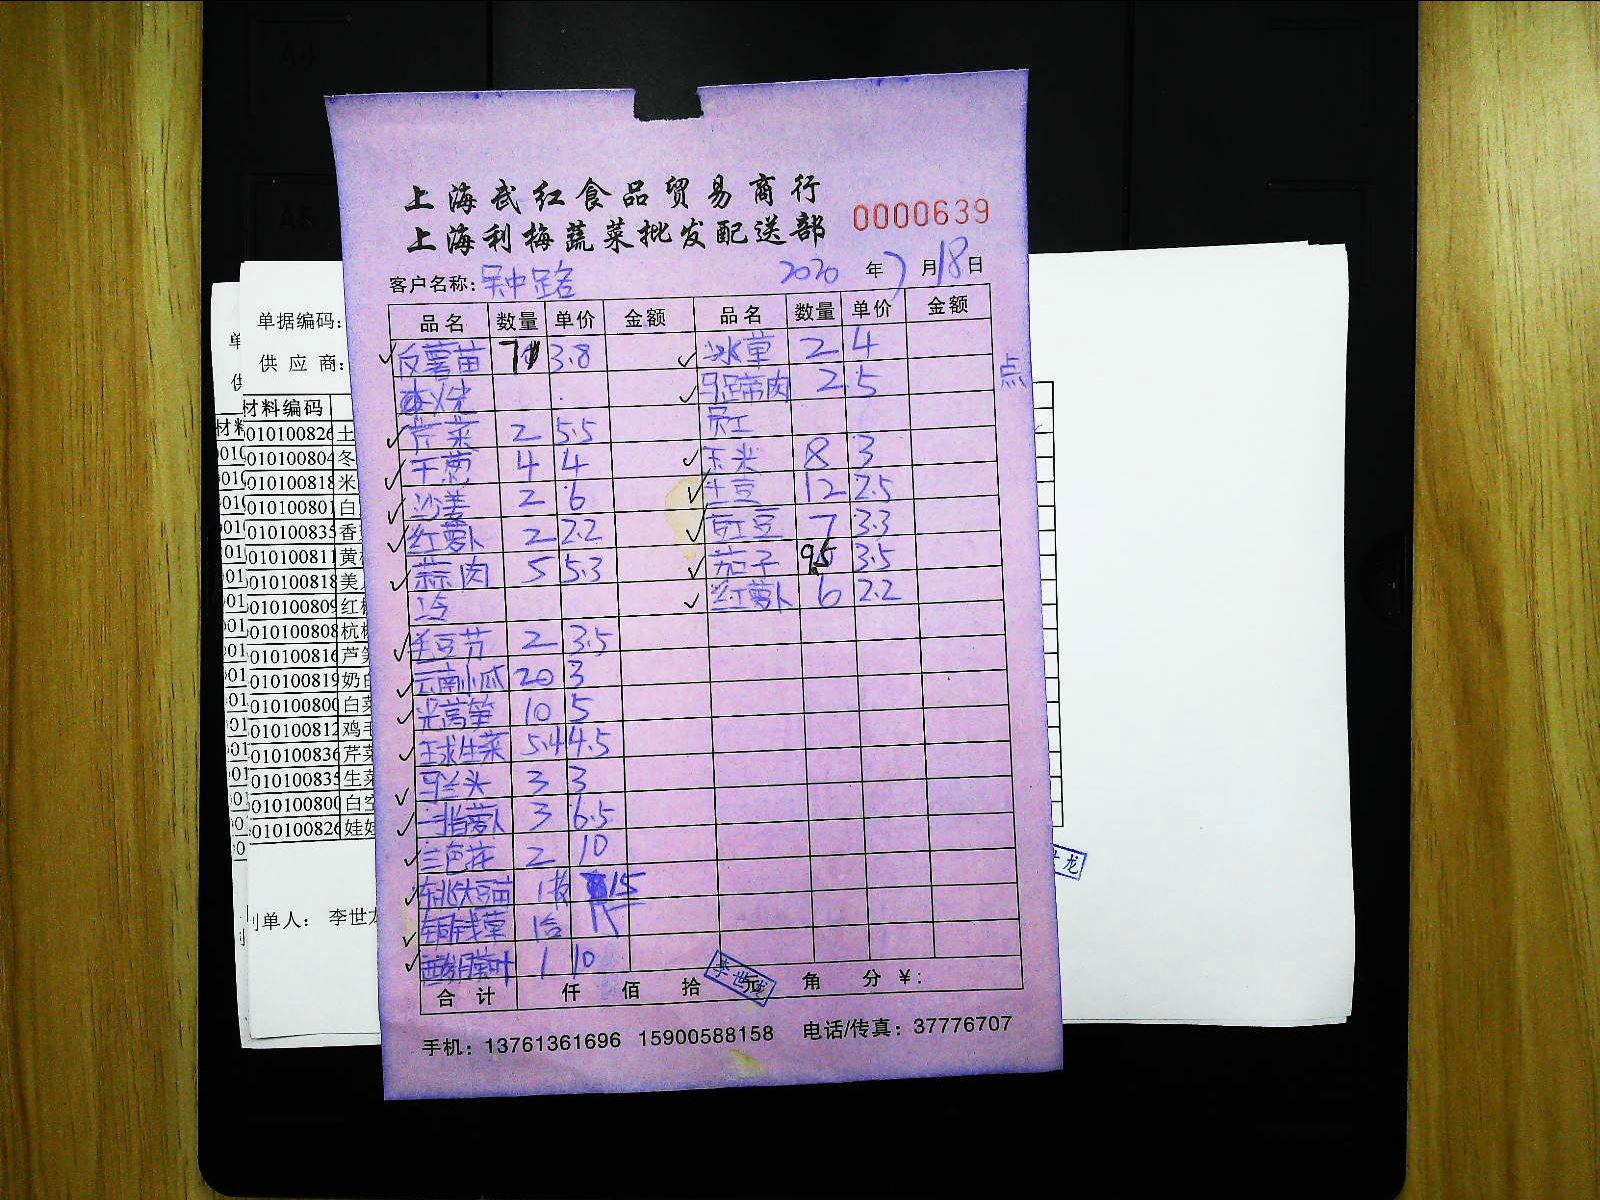 上海武红食品贸易商行
上海利梅蔬菜批发配送部
0000639
客户名称:吴中路 2020 年 7 月 18 日
品名 数量 单价 金额 品名 数量 单价 金额
反薯苗 7 3.8 冰草 2 4
烧 马蹄肉 2 5 点
芹菜 2 5.5 员工
干葱 4 4 玉米 8 3
沙姜 2 6 土豆 12 2.5
红萝卜 2 2.2 豇豆 7 3.3
蒜肉 5 5.3 茄子 9.5 3.5
红萝卜 6 2.2
毛豆节 2 3.5
云南小瓜 20 3
光莴笋 10 5
球生菜 5.4 4.5
马兰头 3 3
手指萝卜 3 6.5
三色花 2 10
东北大豆苗 1 15
铜钱草 1合 15
1 10
合计 仟 佰 拾 元 角 分 ¥:
李世龙
手机: 13761361696 15900588158 电话/传真: 37776707
单据编码:
供 应 商:
材料编码
010100826 土
010100804 冬
010100818 米
010100801 白
01010083 香
01010081 黄
010100818 美
010100809 红
010100808 杭
01010081 芦笋
010100819 奶白
010100800 白菜
010100812 鸡毛
010100836 芹菜
01010083 生菜
010100800 白空
010100826 娃娃
制单人: 李世龙